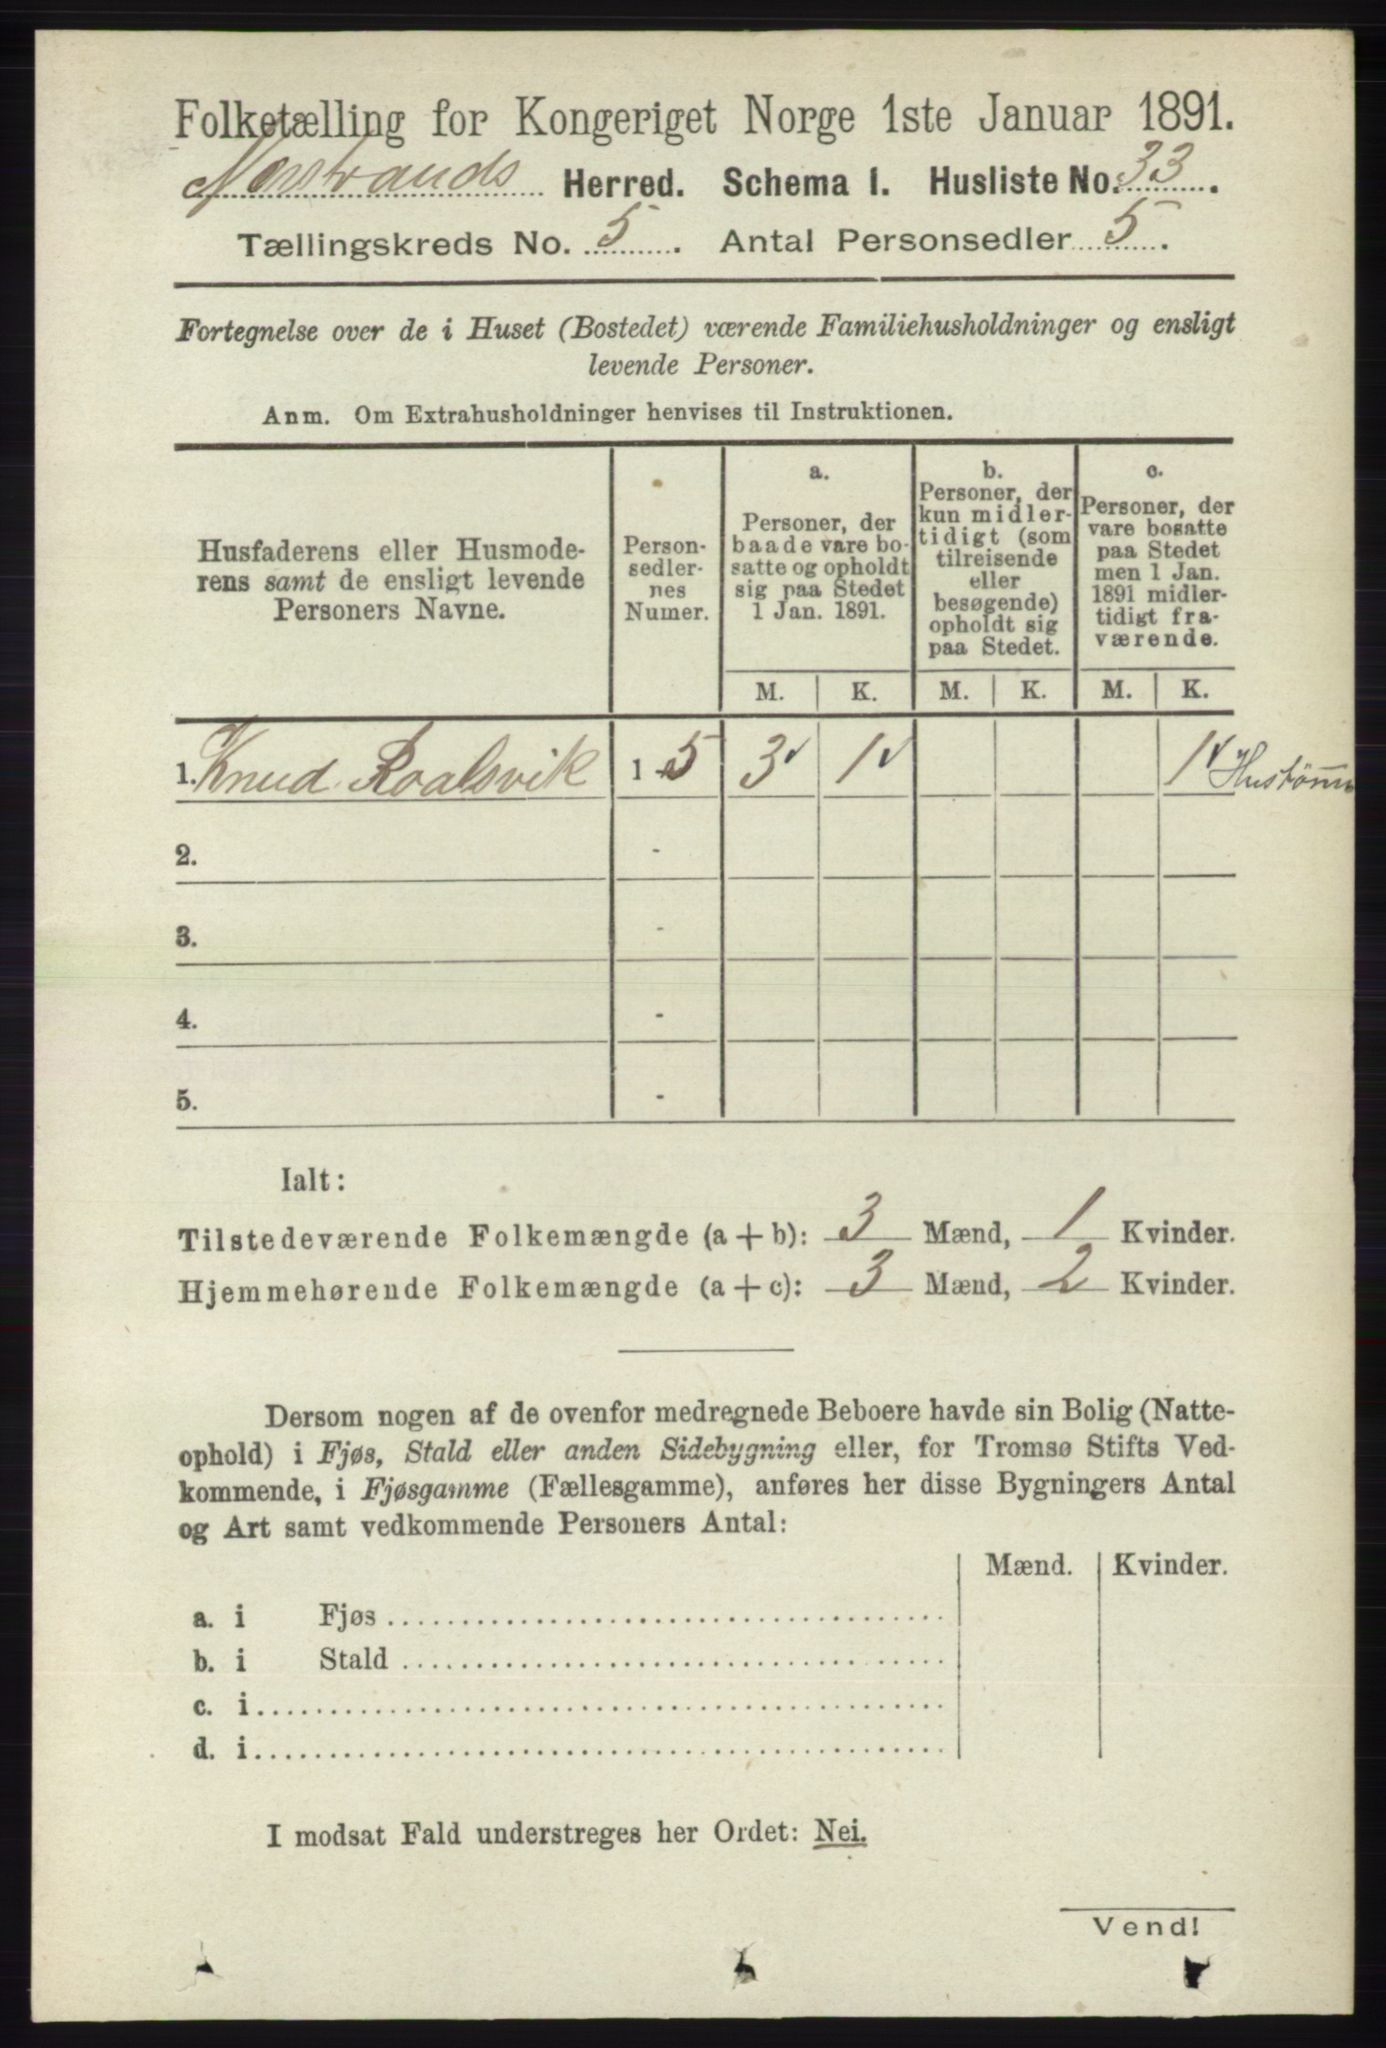 Folketælling for Kongeriget Norge 1ste Januar 1891.
Nærstrands Herred. Schema I. Husliste No. 33.
Tællingskreds No. 5. Antal Personsedler 5.
Fortegnelse over de i Huset (Bostedet) værende Familiehusholdninger og ensligt
levende Personer.
Anm. Om Extrahusholdninger henvises til Instruktionen.
Husfaderens eller Husmode-
rens samt de ensligt levende
Personers Navne.
Person-
sedler-
nes
Numer.
a.
Personer, der
baade vare bo-
satte og opholdt
sig paa Stedet
1 Jan. 1891.
b.
Personer, der
kun midler-
tidigt (som
tilreisende
eller
besøgende)
opholdt sig
paa Stedet.
c.
Personer, der
vare bosatte
paa Stedet
men 1 Jan.
1891 midler-
tidigt fra-
værende.
M. K. M. K. M. K.
1. Knud Roalsvik 1-5 3 1 1
2. -
3. -
4. -
5. -
Ialt:
Tilstedeværende Folkemængde (a + b): 3 Mænd, 1 Kvinder.
Hjemmehørende Folkemængde (a + c): 3 Mænd, 2 Kvinder.
Dersom nogen af de ovenfor medregnede Beboere havde sin Bolig (Natte-
ophold) i Fjøs, Stald eller anden Sidebygning eller, for Tromsø Stifts Ved-
kommende, i Fjøsgamme (Fællesgamme), anføres her disse Bygningers Antal
og Art samt vedkommende Personers Antal:
Mænd. Kvinder.
a. i Fjøs
b. i Stald
c. i
d. i
I modsat Fald understreges her Ordet: Nei.
Vend!